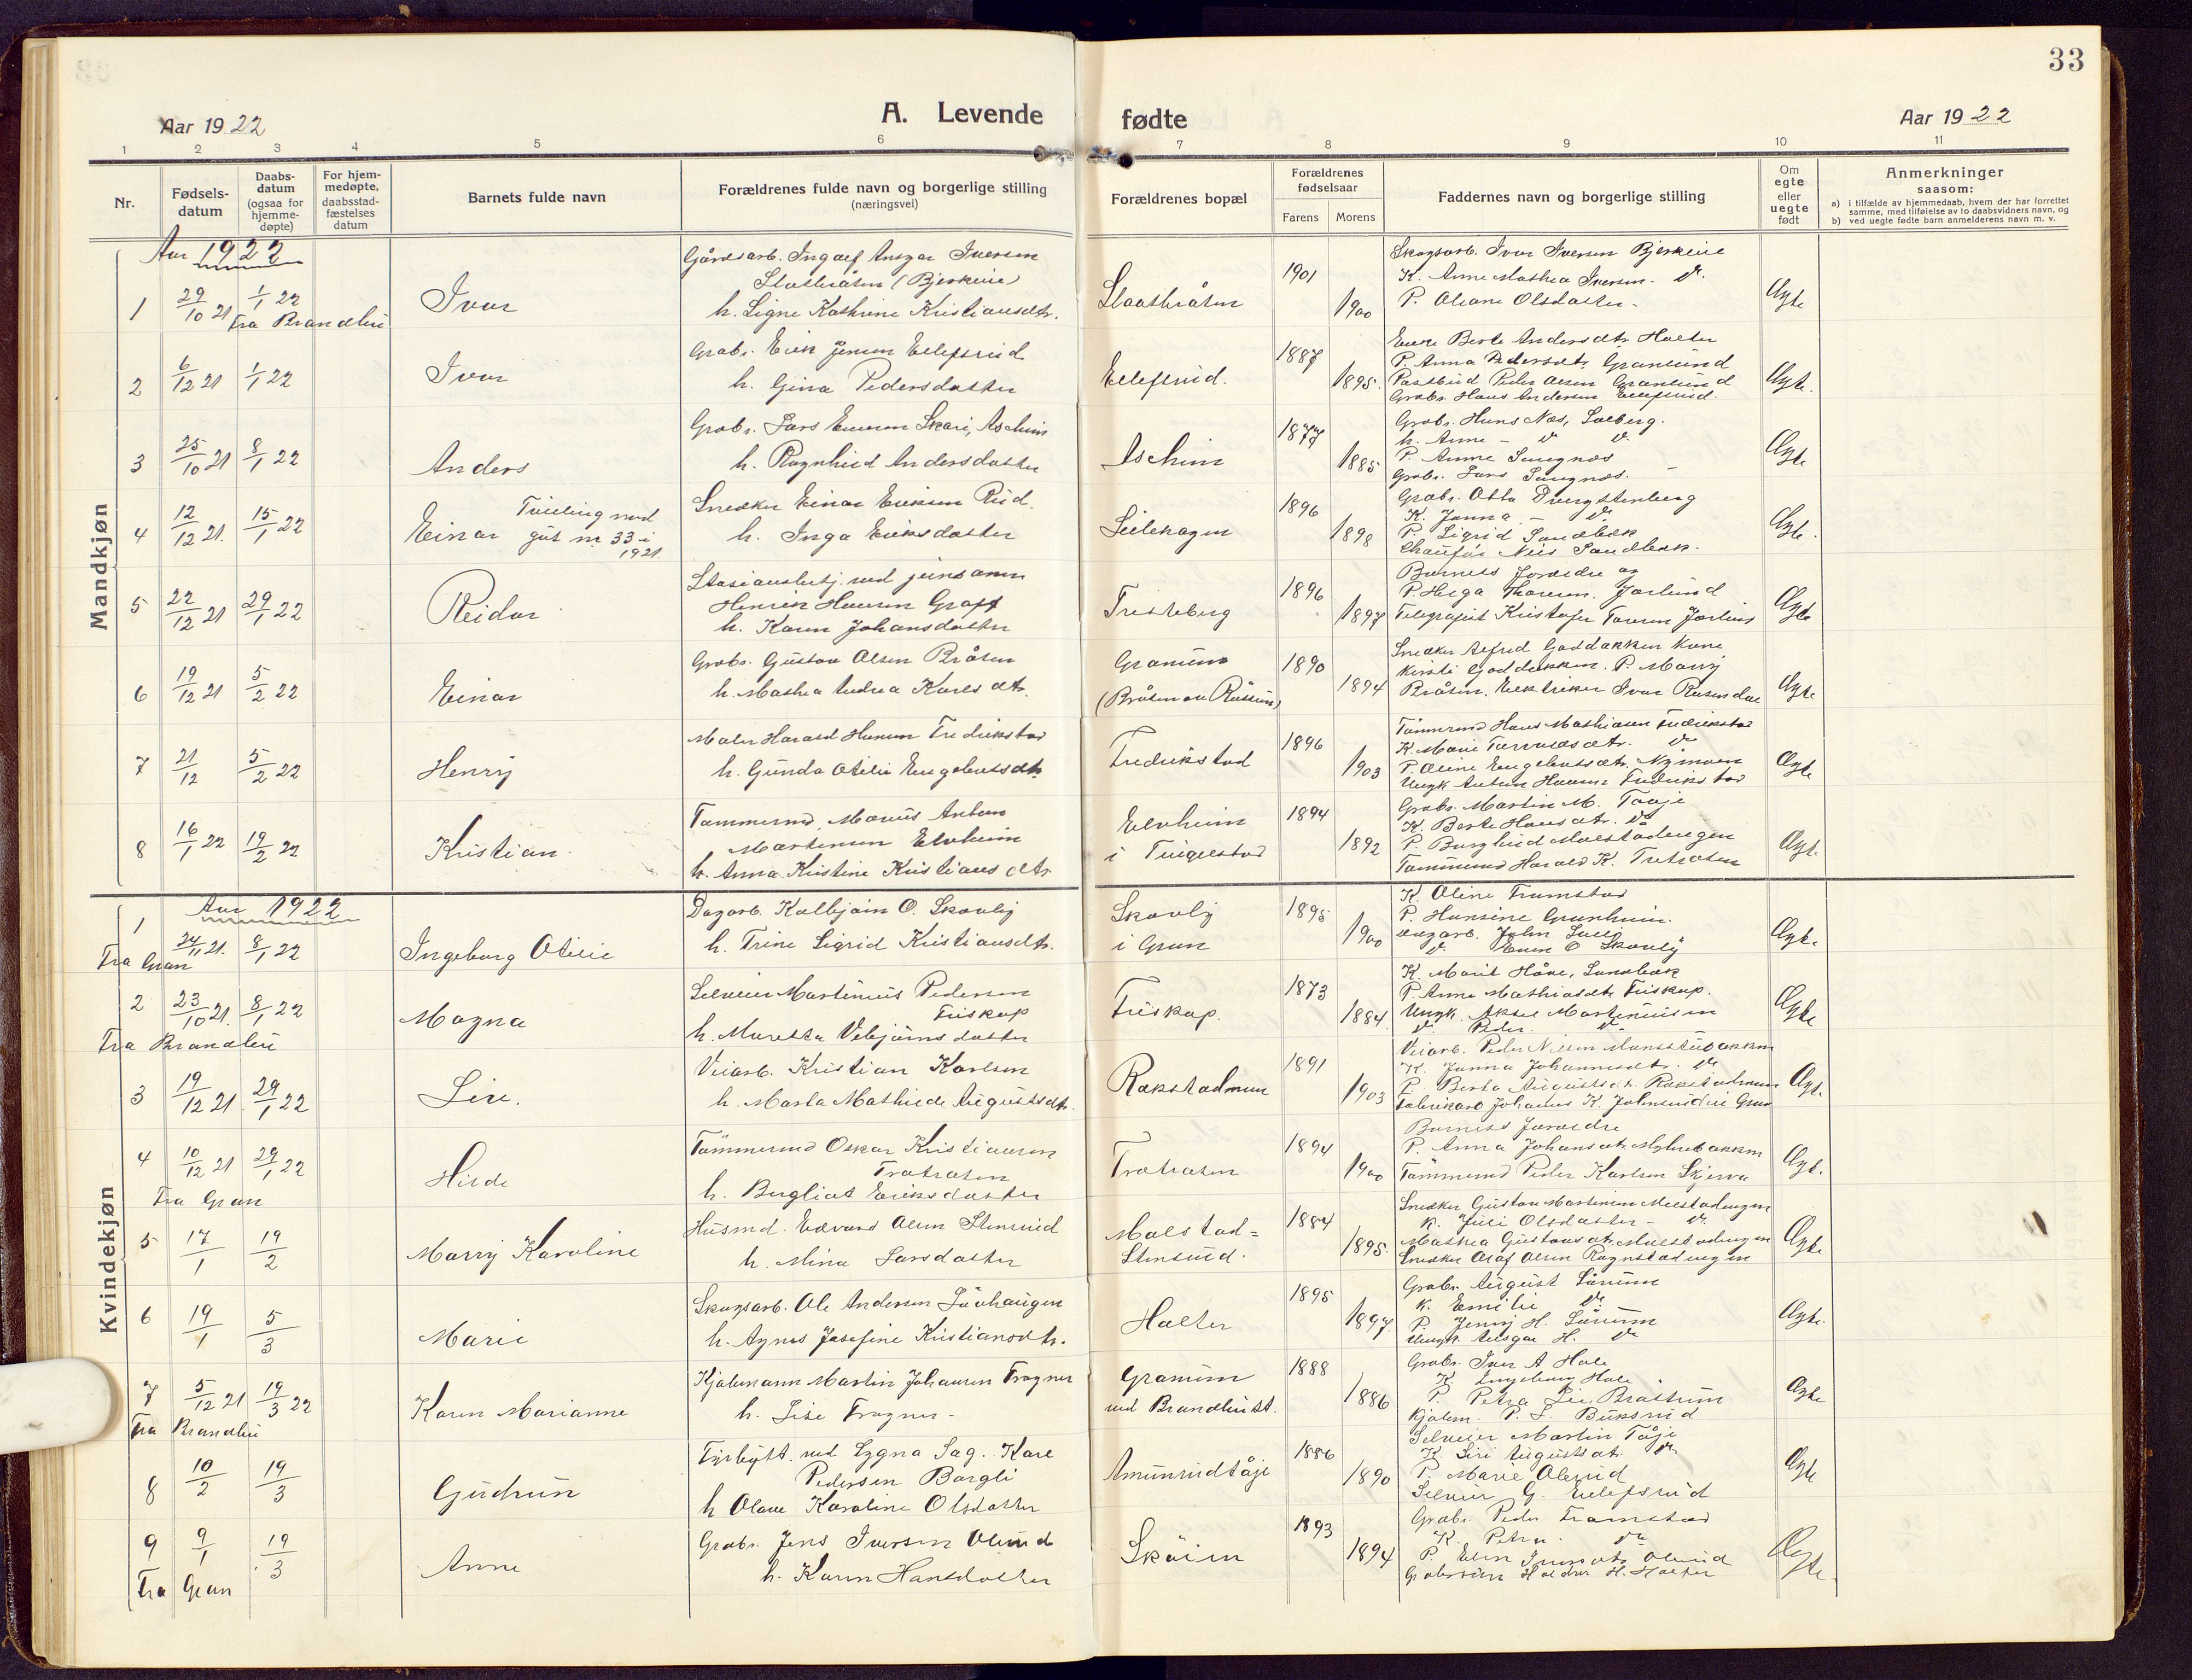 33
Aar 1922
A. Levende
fødte
Aar 1922
1 2 3 4 5 6 7 8 9 10 11
Nr.
Fødsels-
datum
Daabs-
datum
(ogsaa for
hjemme-
døpte)
For hjem-
medøpte,
daabsstad-
fæstelses
datum
Barnets fulde navn
Forældrenes fulde navn og borgerlige stilling
(næringsvei)
Forældrenes bopæl
Forældrenes
fødselsaar
Farens Morens
Faddernes navn og borgerlige stilling
Om
egte
eller
uegte
født
Anmerkninger
saasom:
a) i tilfælde av hjemmedaab, hvem der har forrettet
samme, med tilføielse av to daabsvidners navn, og
b) ved uegte fødte barn anmelderens navn m. v.
Mandkjøn
Aar 1922
1 29/10 21 1/1 22
Fra Brandbu
Ivar
Gårdsarb. Ingolf Ansgar Iversen
(Bjerkeie)
h. Signe Kathrine Kristiansdtr.
1901
1900
Skogsarb. Ivar Iversen Bjerkeie
K. Anne Mathea Iversen
P. Oliane Olsdatter
Ægte
2 6/12 21 1/1 22
Ivar
Grbr. Erik Jensen Ellefsrud
h. Gina Pedersdatter
Ellefsrud.
1887
1895.
Enke Berte Andersdtr Holter
P. Anna Pedersdtr. Granlund
Postbud Peder Olsen Granlund
Grbr. Hans Andersen Ellefsrud.
Ægte.
3 25/10 21 8/1 22
Anders
Grbr. Lars Skari, Aschim
h. Ragnhild Andersdatter
Aschim
1877
1885
Grbr. Hans Næs, Solberg.
h. Anne
P. Anne Sangnæs
Grbr. Lars Sangnæs.
Ægte
4 12/12 21. 15/1 22
Einar
Tvilling med
gut nr 33 i
1921.
Snedker Einar Eriksen Rud.
h. Inga Eriksdatter
1896
1898
Grbr. Otto Dvergstenberg
K. Janna
P. Sigrid Sandbæk
Chaufør Nils Sandbæk.
Ægte.
5 22/12 21 29/1 22
Reidar
Henrik Hansen Graff
h. Karen Johansdatter
Tristeberg
1896
1897
Barnets forældre og
P. Helga Thoresen. Jorlund
Telegrafist Kristofer
Ægte
6 19/12 21 5/2 22
Einar
Grbr. Gustav Olsen Bråten
h. Mathea Andrea Karlsdtr.
Granum
1890
1894
Snedker Alfred Goddakken Kone
Kirsti Goddakken. P. Marry
Bråten. Elektriker Ivar Rosendal
Ægte
7 21/12 5/2 22
Henry
Maler Harald Hansen Fredrikstad
h. Gunda Otilie Engebretsdtr.
Fredrikstad
1896
1903
Tømmermd Hans Mathiasen Fredrikstad
P. Oline Engebretsdtr. Nymoen
Ungk Anton Hansen Fredrikstad
Ægte
8 16/1 22 19/2 22
Kristian.
Tømmermd. Marius Anton
Martinsen Elvheim
h. Anna Kristine Kristiansdtr
Elvheim
i Tingelstad
1894
1892
Grbr. Martin M. Tåje
K. Berte Hansdtr.
P. Borghild Molstadengen
Tømmermd Harald K. Trotraten
Ægte.
Kvindekjøn
Aar 1922
1 24/11 21. 8/1 22
Fra Gran
Ingeborg Otilie
Dagarb. Kolbjørn O. Skovly
h. Trine Sigrid Kristiansdtr.
Skovly
i Gran
1895
1900
K. Oline Framstad
P. Hansine Granheim.
Ægte.
2 23/10 21. 8/1 22
Fra Brandbu
Magna
Selveier Martinius Pedersen
Friskop
h. Maretta Vebjørnsdatter
Friskop.
1873
1884.
K. Marit Håve, Sandbæk
P. Anne Mathisdtr Friskop.
Ungk. Aksel Martiniussen
Ægte
3 19/12 21. 29/1 22
Siri.
Veiarb. Kristian Karlsen
h. Marta Mathilde Augustsdtr.
Rækstadmoen
1891
1903
Veiarb. Peder Nilsen
K. Janna Johannesdtr.
P. Berta Augustsdtr. Rækstadmoen
Ægte.
4 10/12 21 29/1 22
Fra Gran
Hilde
Tømmermd Oskar Kristiansen
Trotraten
h. Bergliot Eriksdatter
Trotraten
1894
1900
Barnets forældre
P. Anna Johansdtr
Tømmermd Peder Karlsen Skjerva
Ægt.
5 17/1 19/2
Marry Karoline
Husmd. Edvard Olsen Stensrud
h. Mina Larsdatter
Molstad=
Stensrud.
1884
1895.
Snedker Gustav Martinsen Molstadengen
K. Juli Olsdatter
Mathea Gustavsdtr. Molstadengen
Snedker Olaf Olsen Rognstadengen
Ægte
6 19/1 5/3
Marie
Skogsarb. Ole Andersen Løvhaugen
h. Agnes Josefine Kristiansdtr.
Holter
1895
1897.
Grbr. August Lårum
K. Emilie
P. Jenny H. Lårum
Ungk. Ansgar H.
Ægte.
7 5/12 21 19/3 22
Fra Brandbu
Karen Marianne
Kjøbmann Martin Johansen Fragner
h. Lise Fragner
Granum
ved Brandbu st.
1888
1886
Grbr. Iver A Hole
K. Ingeborg Hole
P. Petra Lie, Brattrum
Kjøbm. P. L. Buksrud
Ægte
8 10/2 19/3
Gudrun
Fyrbøt. ved Lygna Sag. Kare
Pedersen Borgli
h Olave Karoline Olsdatter
Amundrudtåje
1886
1890
Selveier Martin Tåje
K. Siri Augustsdtr.
P. Marie Olerud
Selveier G. Ellefsrud
Ægte
9 9/1 19/3
Fra Gran
Anne
Grbr. Jens Iversen Olerud
h. Karen Hansdatter
Skåien
1893
1894
Grbr. Peder Framstad
K. Petra
P. Elin Jensdtr. Olerud
Ægte.